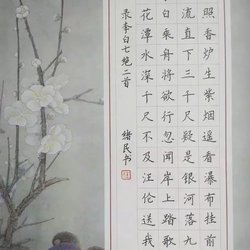 照香炉生紫烟遥看瀑布挂前
流直下三千尺疑是银河落九
白乘舟将欲行忽闻岸上踏歌
花潭水深千尺不及汪伦送我
录李白七绝二首
绪民书